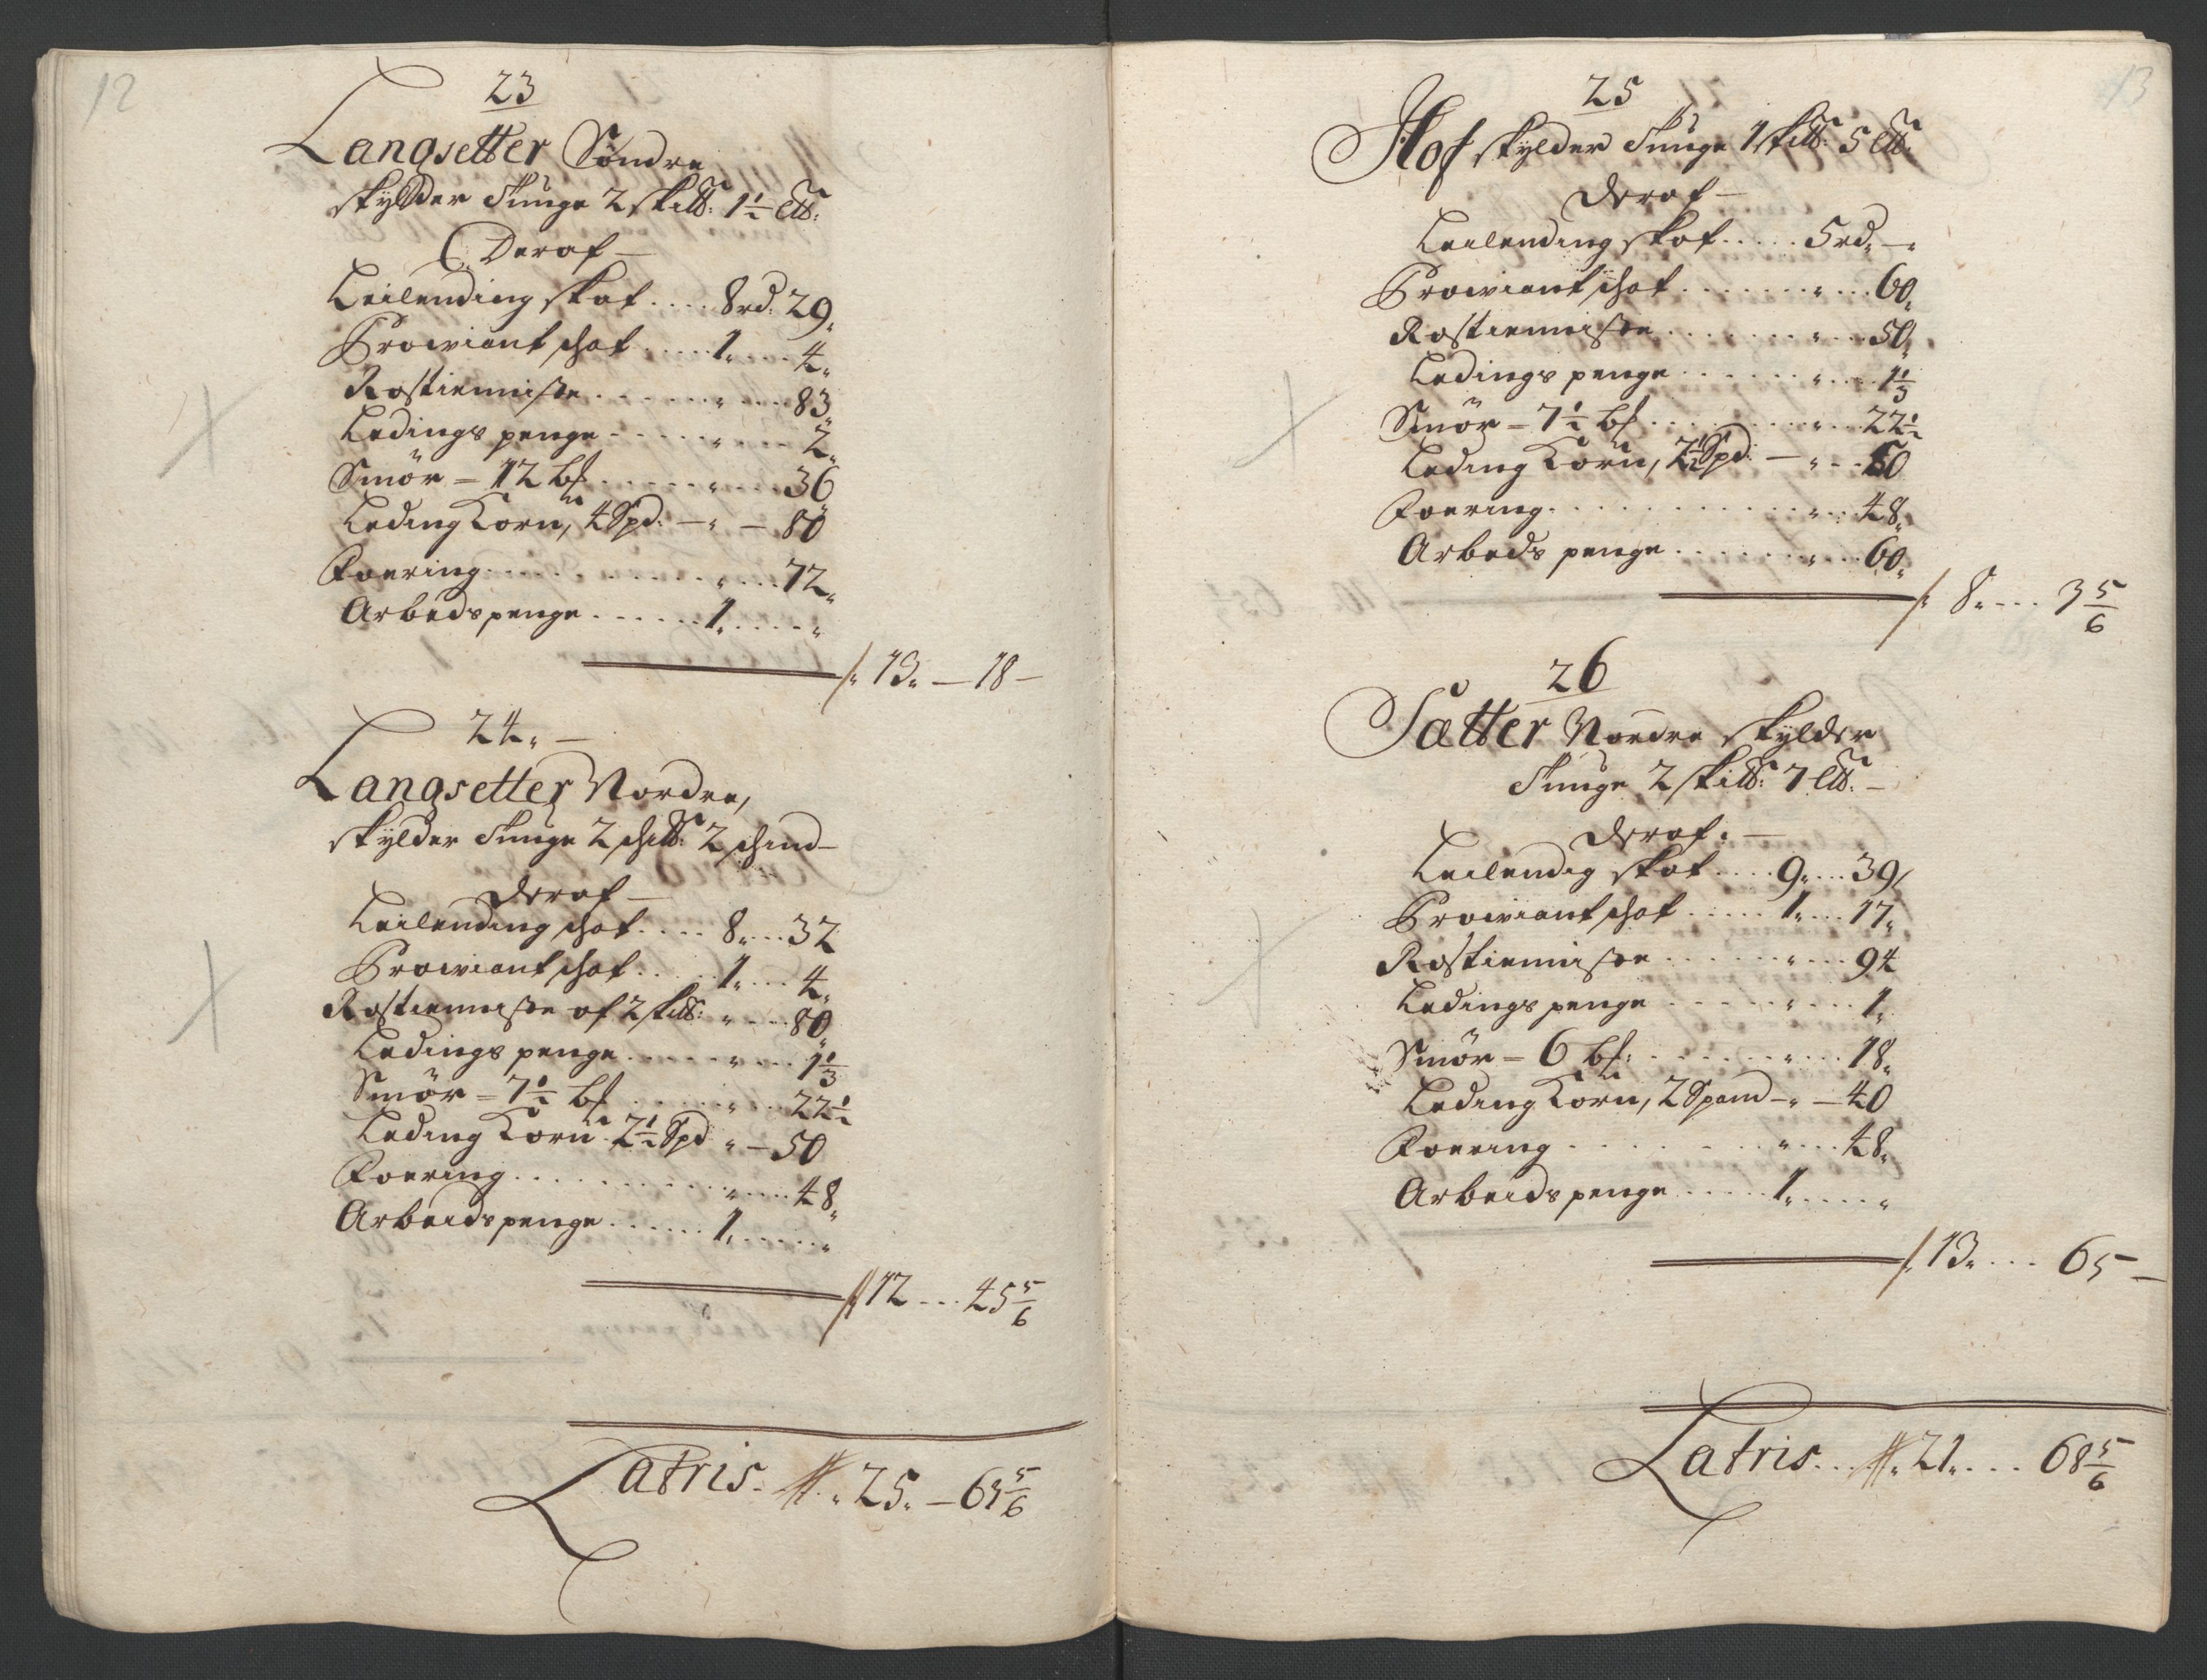 12
23
Langsetter Søndre
skylder Tunge 2 skill: 1½ Ltt:
Deraf —
Leilending skat .... 8 rd: 29„
Prowiant schat .... 1„ ... 4„
Rostienniste ....... „ ... 83„
Ledings penge - .... „ ... 2„
Smör = 12 bll ...... „ ... 36„
Leding Korn, 4 Spd: — „ — 80
Foering ............ „ ... 72„
Arbeds penge ...... 1„ .... „
/: 13„ — 18 —
24„ —
Langsetter Nordre,
skylder Tunge 2 schill: 2 schind —
Deraf —
Leilending schat .... 8„ ... 32
Prowiant schat .... 1„ ... 4„
Rostienniste af 2 skill: „ ... 80„
Ledings penge ....... „ ... 1⅓
Smör = 7½ bll ...... „ ... 22½
Leding Korn 2½ Spd „ — 50
Foering ............ „ ... 48„
Arbeids penge ...... 1„ .... „
// 12 ... 45⅚
Latris. „ 25„ — 63⅚
13
25
Hof skylder Tunge 1 skill: 5 Ltt:
Deraf —
Leilending skat ..... 5 rd„ —„
Prowiant schat ....... „ ... 60„
Rostienniste ........ „ ... 50„
Ledings penge ....... „ ... 1⅓
Smör = 7½ bll ....... „ ... 22½
Leding Korn, 2½ Spd: — „ .. 50
Foering ............. „ ... 48„
Arbeds penge ........ „ ... 60„
/: 8„ ... 3⅚
26
Sætter Nordre skylder
Tunge 2 skill: 7 Ltt. —
Deraf. —
Leilendig skat .... 9„ ... 39/
Prowiant schat ..... 1„ ... 17„
Rostienniste ....... „ ... 94
Ledings penge ...... „ ... 1„
Smör = 6 bll: ...... „ ... 18„
Leding Korn, 2 Spand — „ — 40
Foering ........... „ ... 48„
Arbeids penge ..... 1„ .... „
/: 13„ ... 65 —
Latris... „ 21„ ... 68⅚